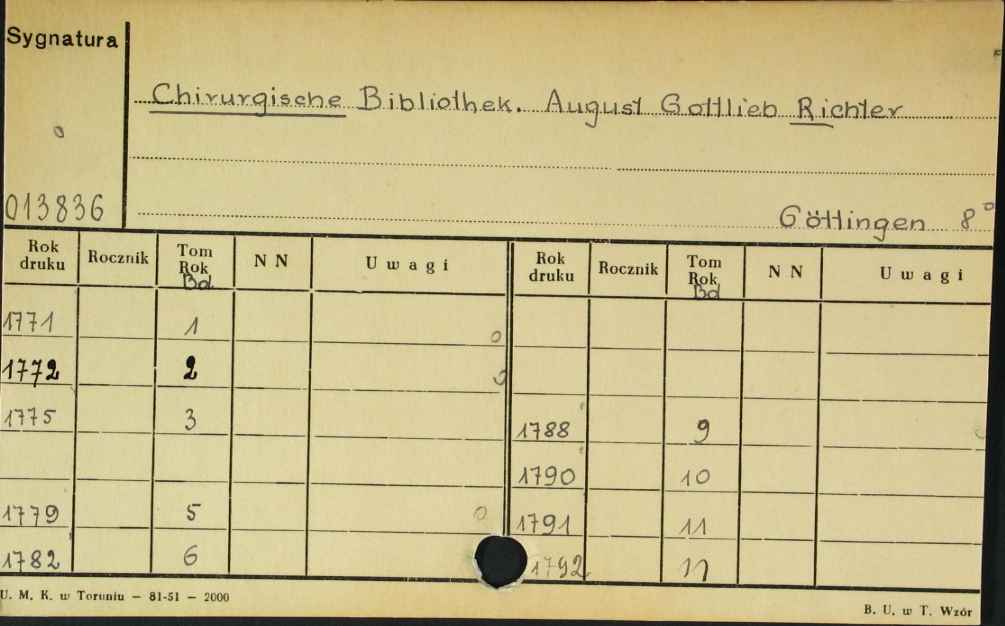 Sygnatura
Chirurgische Bibliothek. August Gottlieb Richter
013836
Göttingen 8°
Rok druku Rocznik Tom Rok Bd. N N Uwagi Rok druku Rocznik Tom Rok Bd N N Uwagi
1771 1
1772 2
1775 3 1788 9
1790 10
1779 5 1791 11
1782 6 1792 11
U. M. K. w Toruniu — 81-51 — 2000
B. U. w T. Wzór